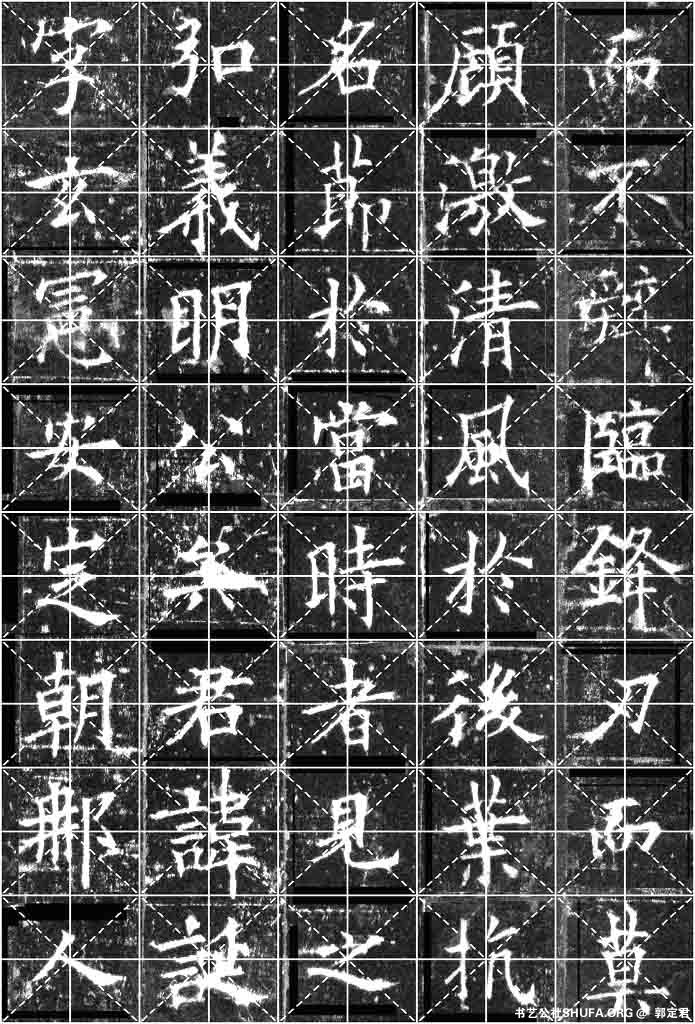 而不辭臨鋒刃而莫
顧激清風於後葉抗
名節於當時者見之
弘義明公矣君諱誕
字玄憲安定朝那人
书艺公社SHUFA.ORG @ 郭定君